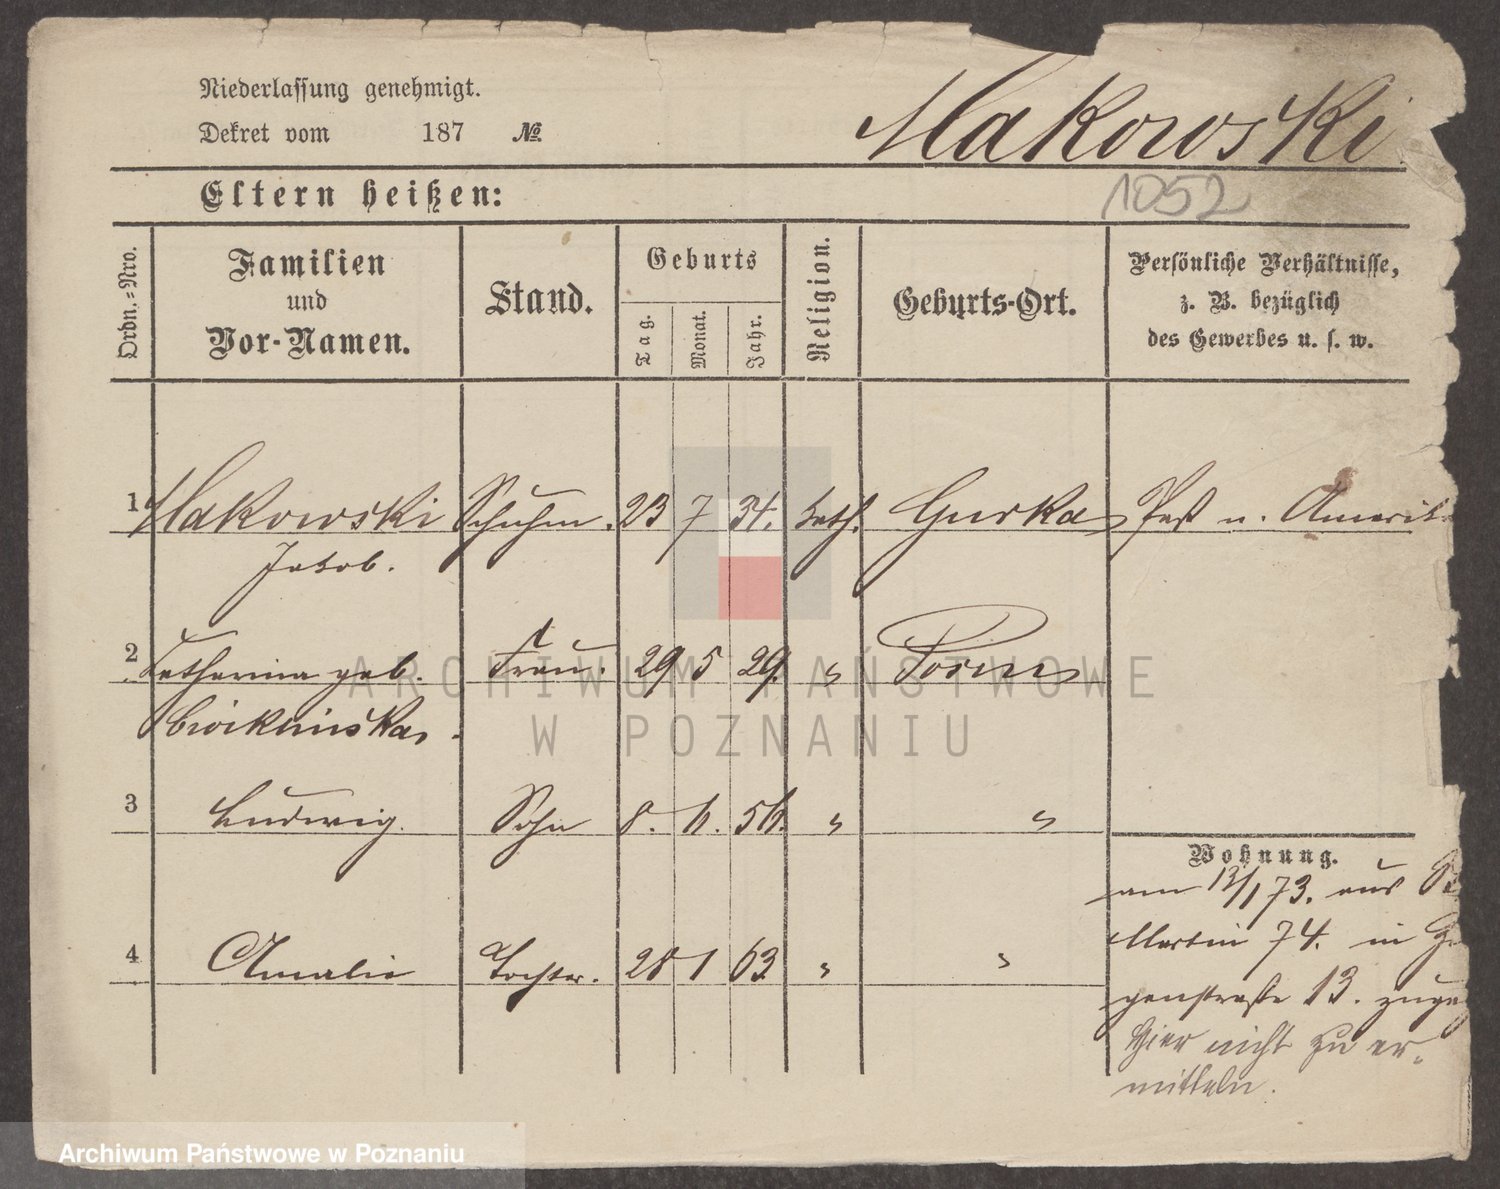 Niederlassung genehmigt.
Makowski
Dekret vom 187 №
Eltern heißen:
1052
Ordn.-Nro.
Familien und Vor-Namen.
Stand.
Geburts
Tag. Monat. Jahr.
Religion.
Geburts-Ort.
Persönliche Verhältnisse,
z. B. bezüglich
des Gewerbes u. s. w.
1 Makowski Schuhm. 23 7 34. kath. Gurka Paß n. Amerik
Jakob.
2 Catharina geb. Frau. 29 5 29. " Posen
3 Ludwig. Sohn 8. " "
4 Amalie Tochter. 28 1 63 " "
Wohnung.
am 13/1 73. aus St
Martin 74. in
genstraße 13. zuge
Hier nicht zu er-
mitteln.
ARCHIWUM PAŃSTWOWE
W POZNANIU
Archiwum Państwowe w Poznaniu